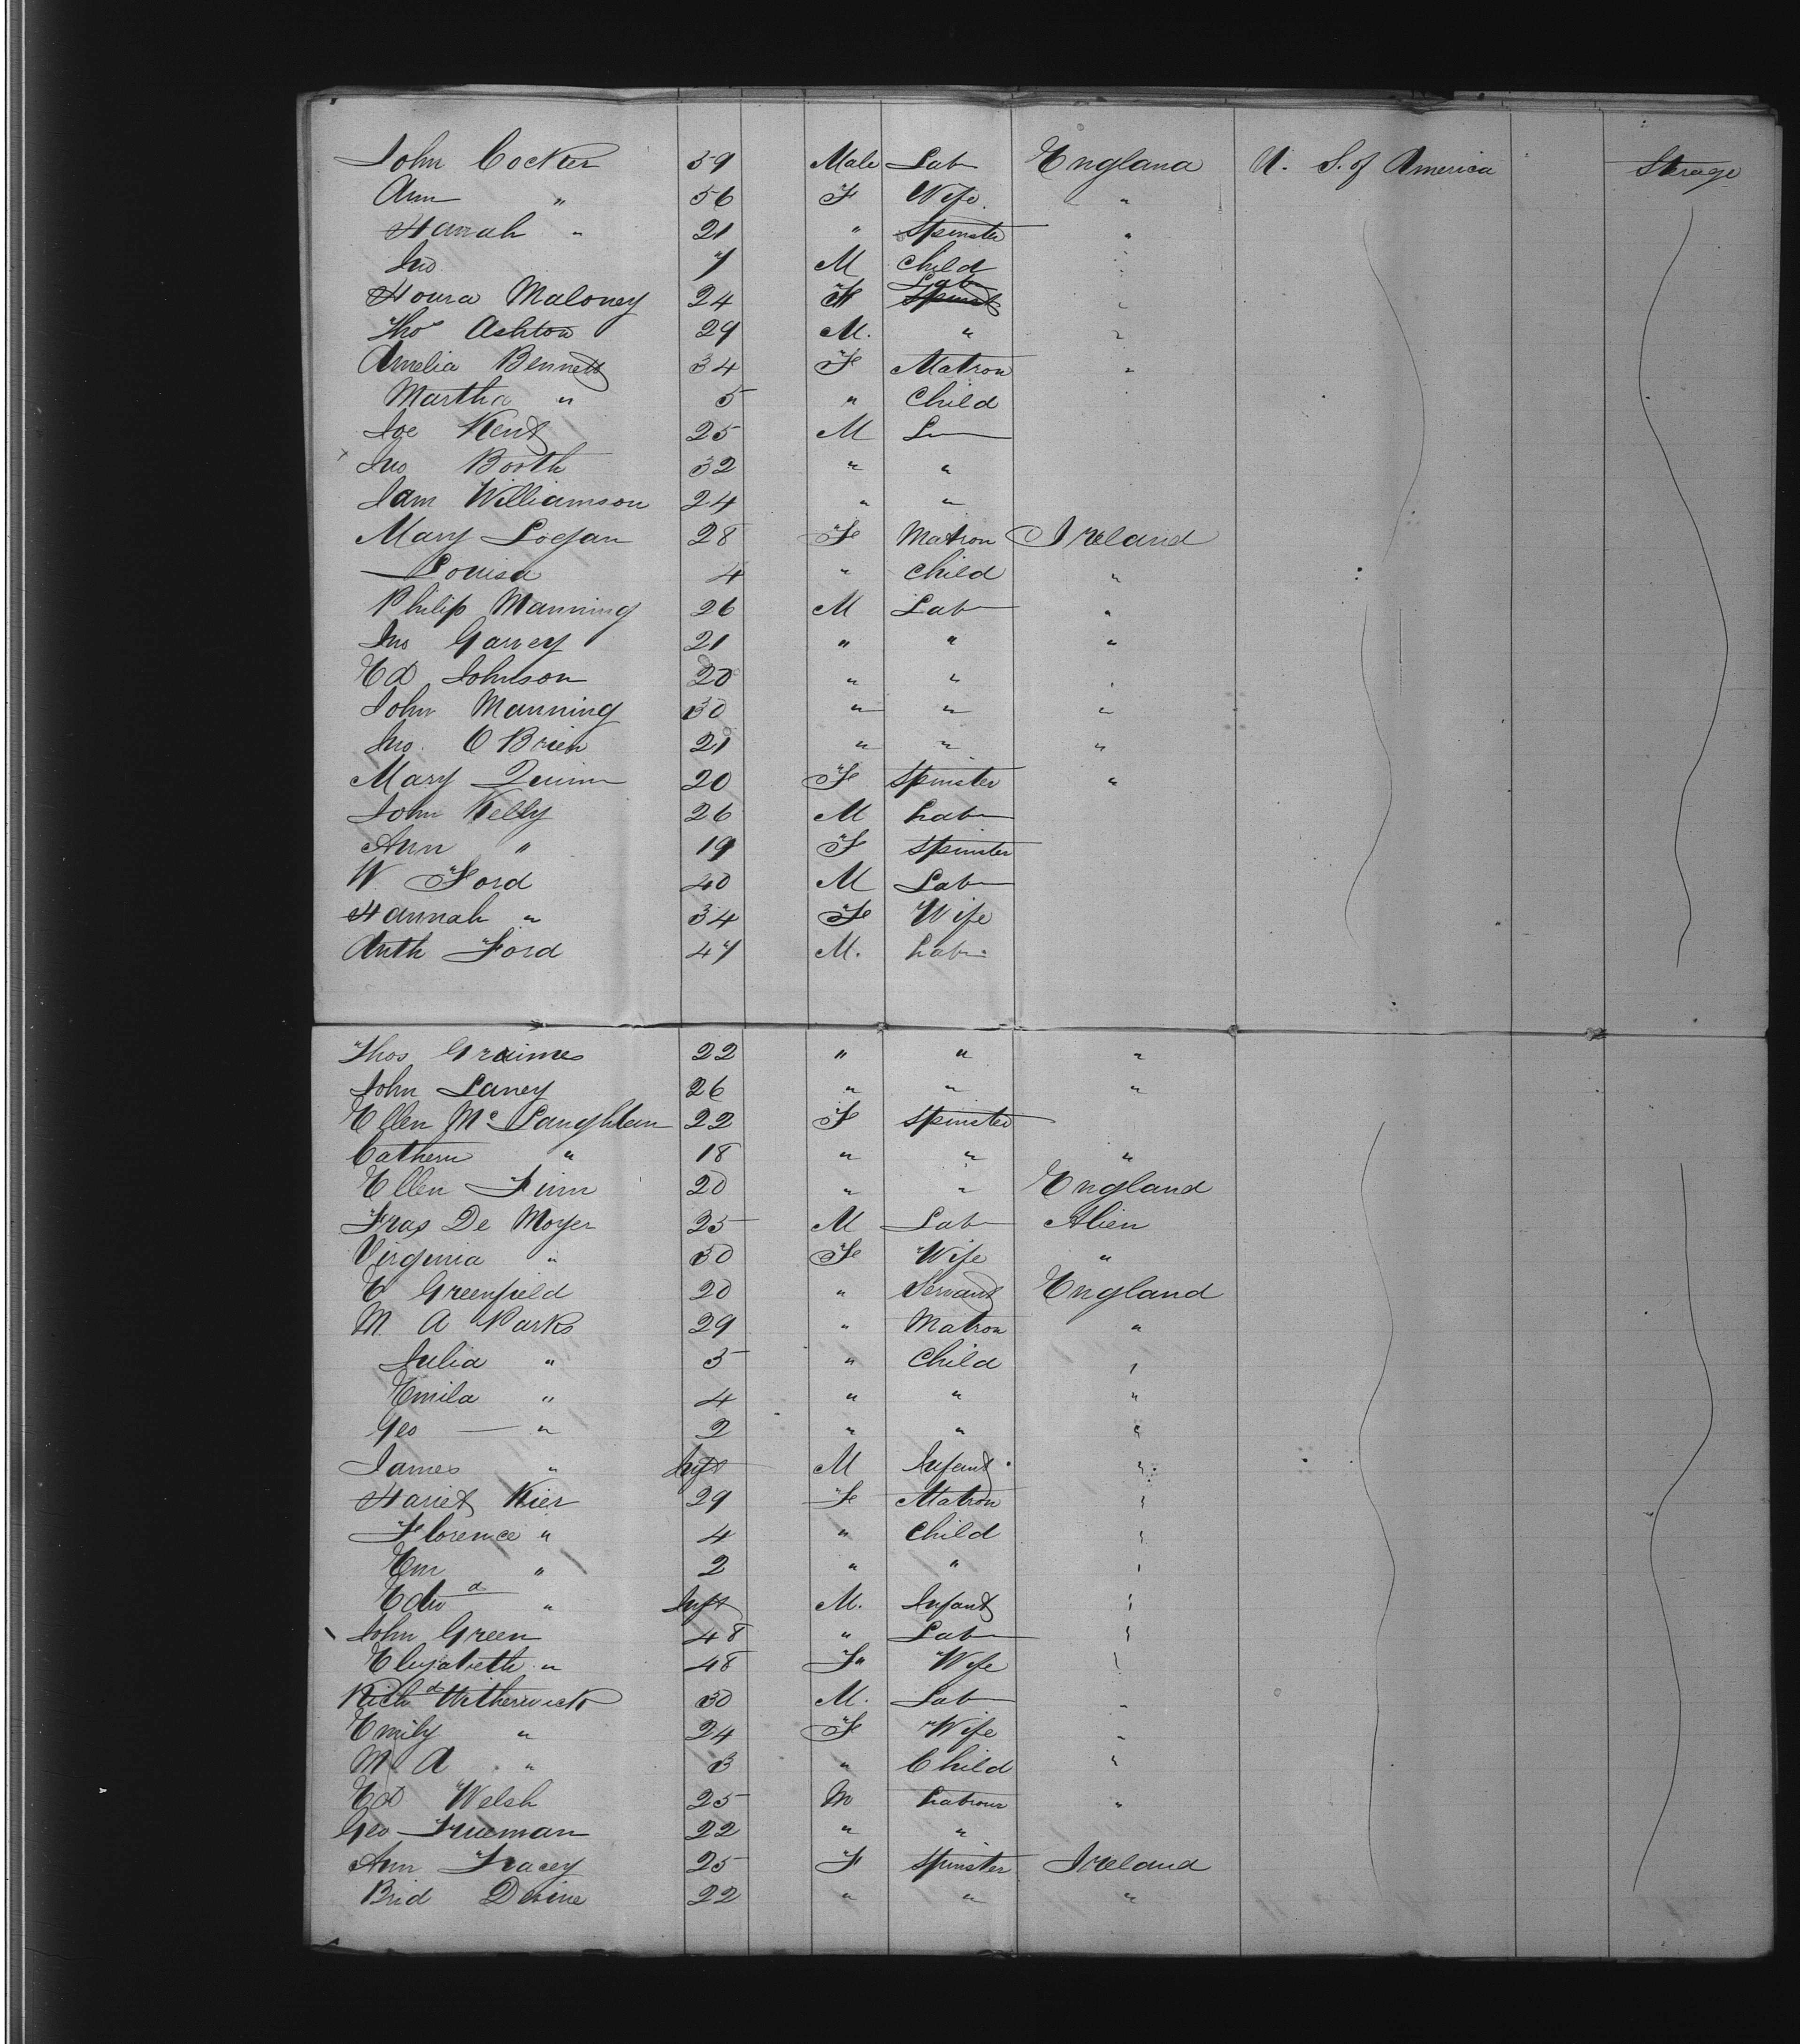 John Cocker 59 Male Lab England U. S. of America Sterage
Ann " 56 F Wife "
Hanah " 21 " Spinster "
Jno 7 M Child "
Honra Maloney 24 F Lab Spinst "
Tho^s Ashton 29 M. " "
Amelia Bennett 34 F Matron "
Martha " 5 " Child
Joe Kent 25 M L
Jno Booth 32 " "
Sam Williamson 24 " "
Mary Logan 28 F Matron Ireland
Louisa 4 " Child "
Philip Manning 26 M Lab "
Jno Garvey 21 " " "
Ed Johnson 20 " " "
John Manning 30 " " "
Jno. O Brien 21 " " "
Mary Quinn 20 F Spinster "
John Kelly 26 M Lab
Ann " 19 F Spinster
W. Ford 40 M Lab
Hannah " 34 F Wife
Anth Ford 47 M. Lab
Thos Graimes 22 " " "
John Laney 26 " " "
Ellen Mc Laughlan 22 F Spinster
Cathern " 18 " " "
Ellen Finn 20 " " England
Fras De Moyer 25 M Lab Alien
Virginia " 30 F Wife "
E Greenfield 20 " Servant England
M. A Parks 29 " Matron "
Julia " 5 " Child "
Emila " 4 " " "
Geo " 2 " " "
James " Inft M Infant "
Hariet Kier 29 F Matron "
Florence " 4 " Child "
Em " 2 " " "
Edw^d " Inft M. Infant "
John Green 48 " Lab "
Elizabeth " 48 F Wife "
Rich^d Witherwick 30 M. Lab "
Emily " 24 F Wife "
M A " 3 " Child "
Ed Welsh 25 M Labrour "
Geo Trueman 22 " "
Ann Tracey 25 F Spinster Ireland
Brid Devine 22 " " "